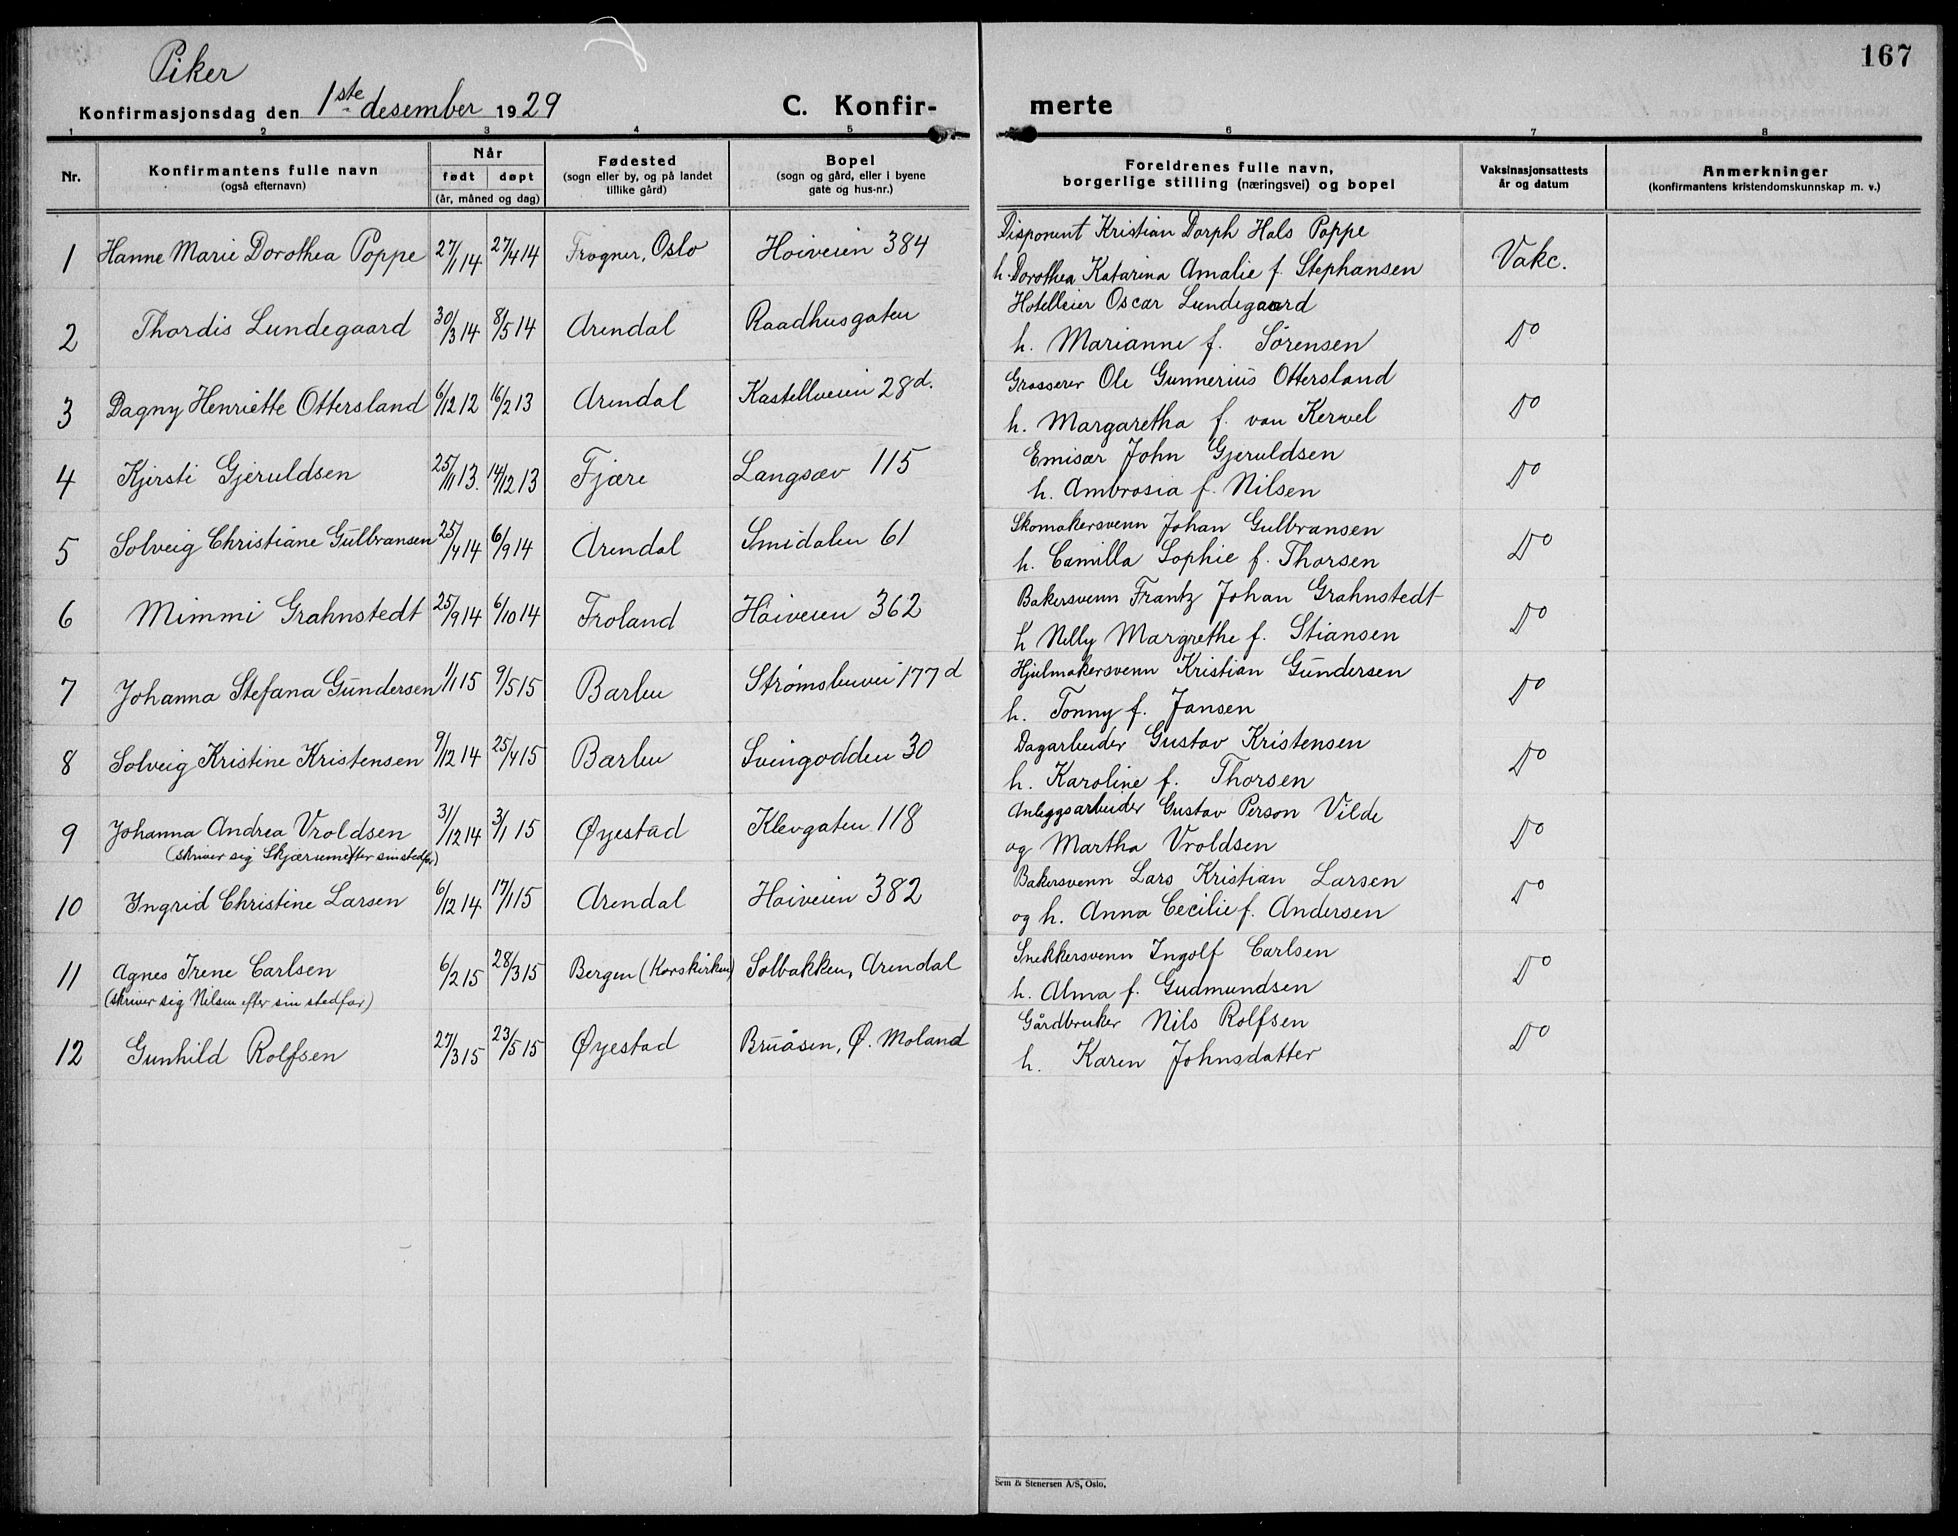 167
Piker
Konfirmasjonsdag den 1ste desember 1929 C. Konfirmerte
1 2 3 4 5 6 7 8
Nr.
Konfirmantens fulle navn
(også efternavn)
Når
født døpt
(år, måned og dag)
Fødested
(sogn eller by, og på landet
tillike gård)
Bopel
(sogn og gård, eller i byene
gate og hus-nr.)
Foreldrenes fulle navn,
borgerlige stilling (næringsvei) og bopel
Vaksinasjonsattests
år og datum
Anmerkninger
(konfirmantens kristendomskunnskap m. v.)
1 Hanne Marie Dorothea Poppe 27/1 14 27/4 14 Frogner, Oslo Høiveien 384 Disponent Kristian Dorph Hals Poppe
h. Dorothea Katarina Amalie f. Stephansen Vakc.
2 Thordis Lundegaard 30/3 14 8/5 14 Arendal Raadhusgaten Hotelleier Oscar Lundegaard
h. Marianne f. Sörensen Do
3 Dagny Henriette Ottersland 6/12 12 16/2 13 Arendal Kastellveien 28d. Grosserer Ole Gunnerius Ottersland
h. Margaretha f. van Kervel Do
4 Kjersti Gjeruldsen 25/11 13. 14/12 13 Fjære Langsæv 115 Emisær John Gjeruldsen
h. Ambrosia f. Nilsen Do
5 Solveig Christiane Gulbransen 25/4 14 6/9 14 Arendal Smidalen 61 Skomakersvenn Johan Gulbransen
h. Camilla Sophie f. Thorsen Do
6 Mimmi Grahnstedt 25/9 14 6/10 14 Froland Höiveien 362 Bakersvenn Frantz Johan Grahnstedt
h Nelly Margrethe f. Stiansen Do
7 Johanna Stefana Gundersen 1/1 15 9/5 15 Barbu Strømsbuvei 177d Hjulmakersvenn Kristian Gundersen
h. Tonny f. Jansen Do
8 Solveig Kristine Kristensen 9/12 14 25/4 15 Barbu Svingodden 30 Dagarbeider Gustav Kristensen
h. Karoline f. Thorsen Do
9 Johanna Andrea Vroldsen 31/12 14 3/1 15 Øyestad Klevgaten 118 Anleggsarbeider Gustav Person Vilde
(skriver sig Skjærum efter sin stedfar) og Martha Vroldsen Do
10 Ingrid Christine Larsen 6/12 14 17/1 15 Arendal Høiveien 382 Bakersvenn Lars Kristian Larsen
og h. Anna Cecilie f. Andersen Do
11 Agnes Irene Carlsen 6/2 15 28/3 15 Bergen (Korskirken) Solbakken, Arendal Snekkersvenn Ingolf Carlsen
(skriver sig Nilsen efter sin stedfar) h. Alma f. Gudmundsen Do
12 Gunhild Rolfsen 27/3 15 23/5 15 Øyestad Bruåsen, Ø. Moland Gårdbruker Nils Rolfsen
h. Karen Johnsdatter Do
Sem & Stenersen A/S, Oslo.